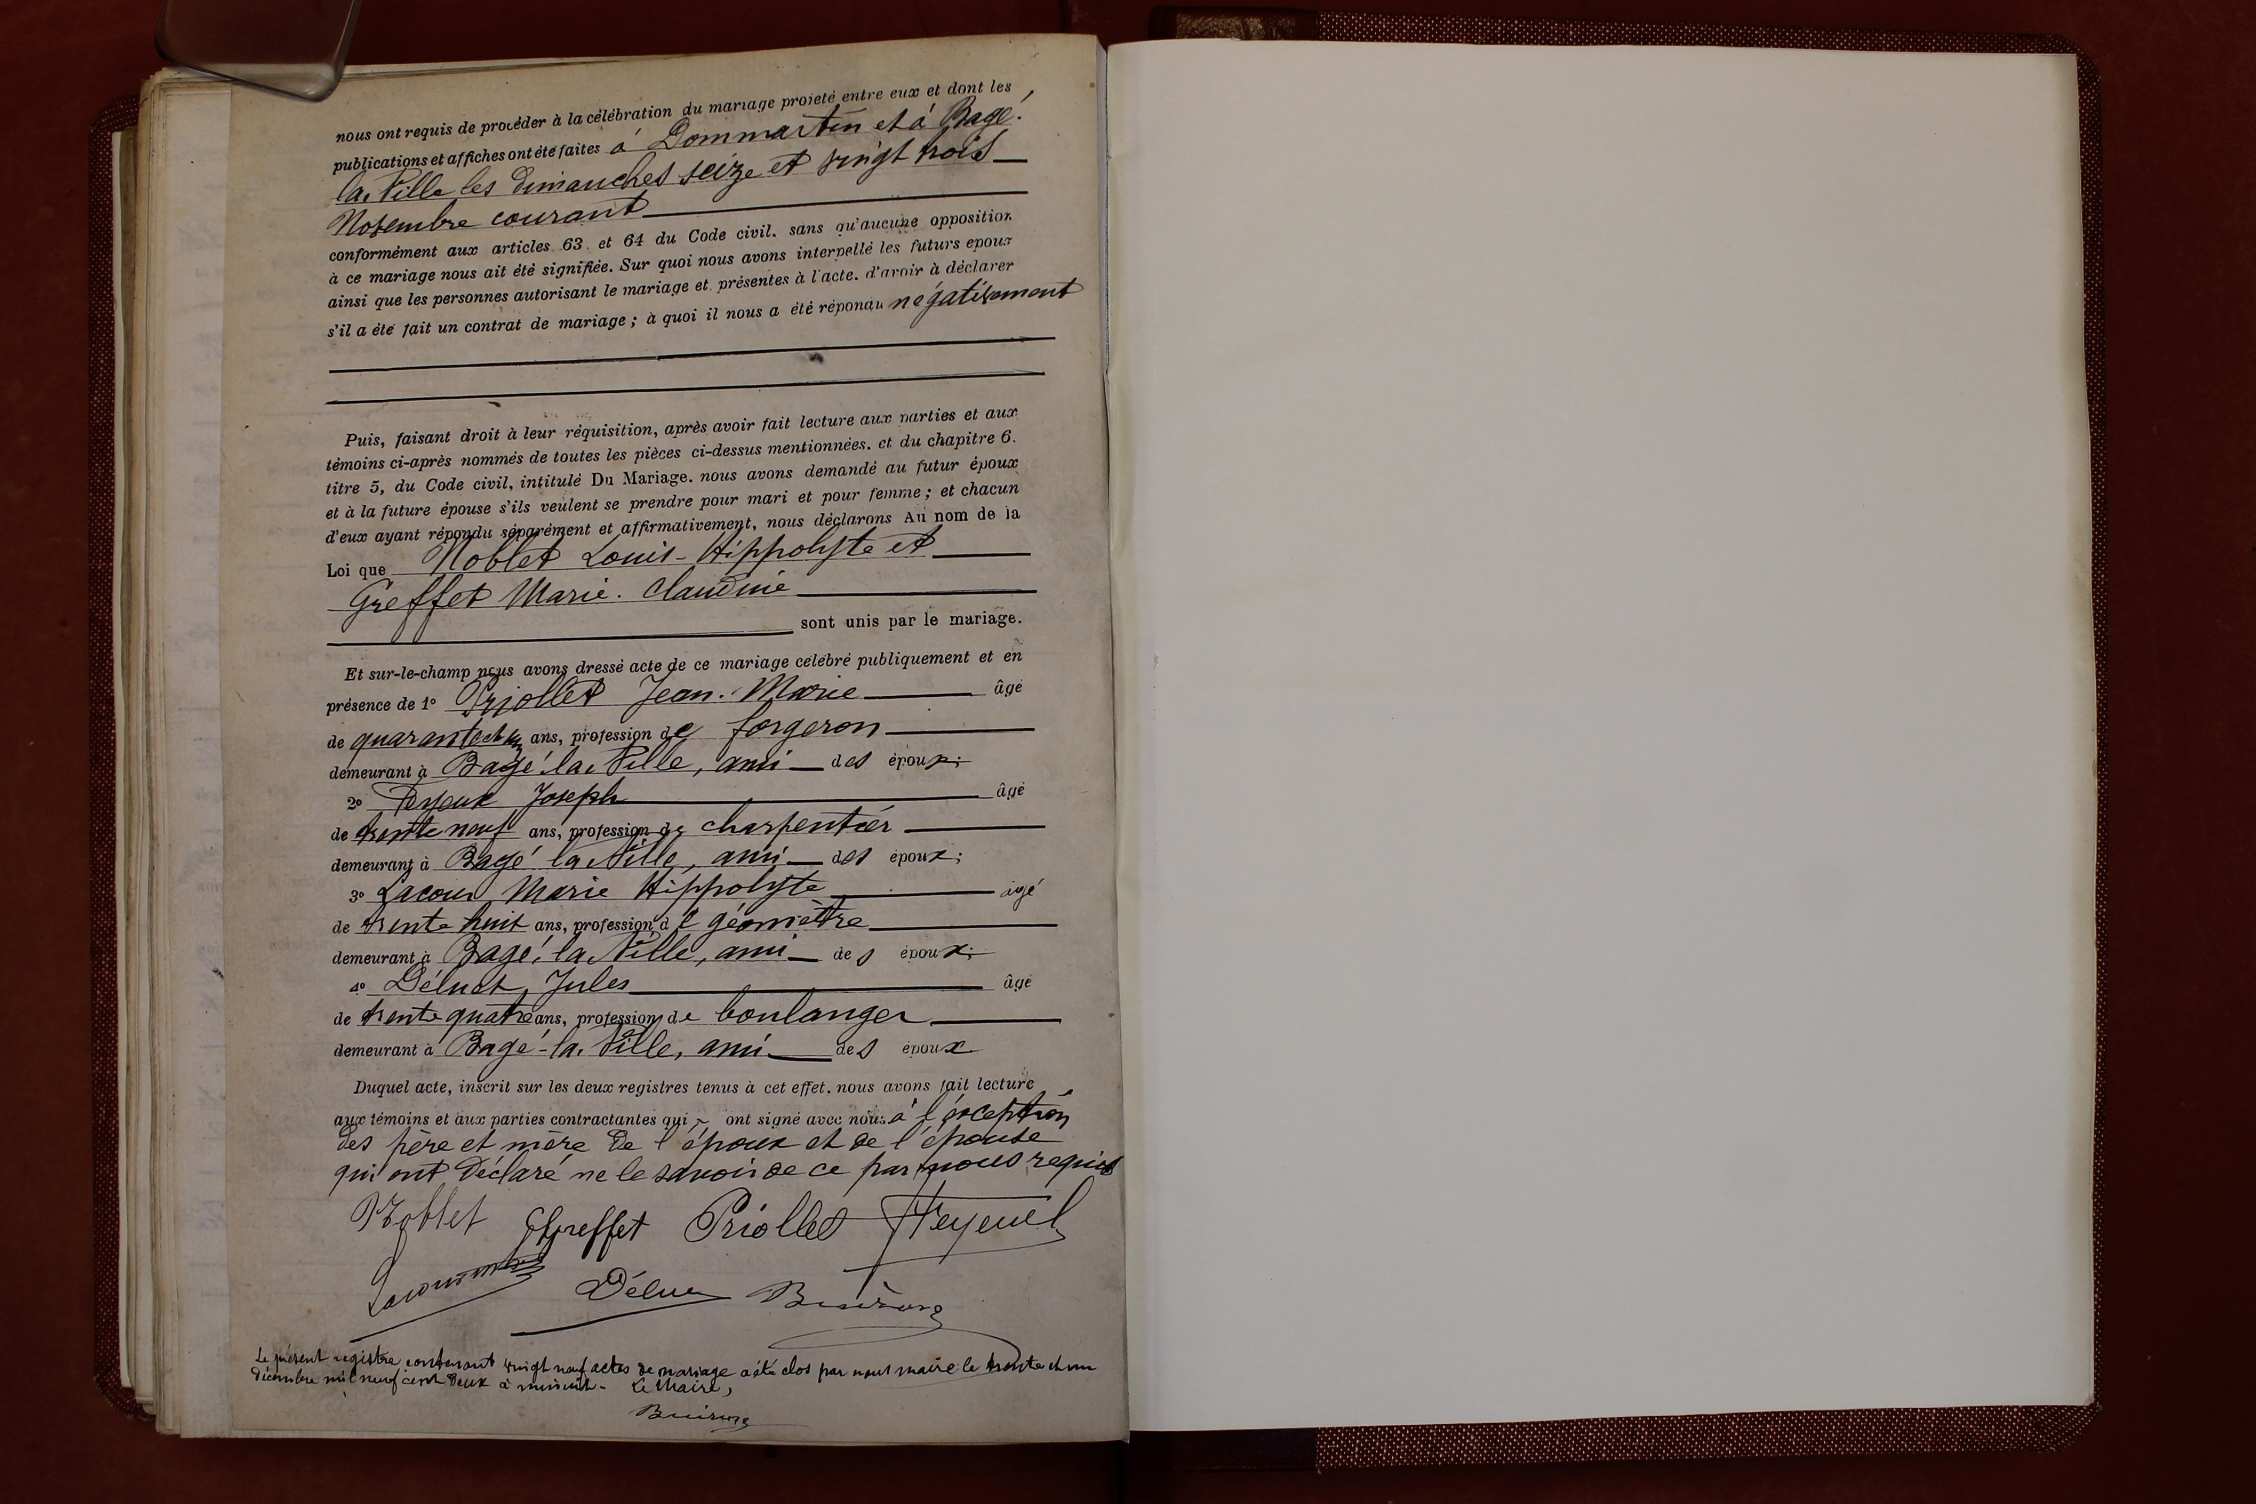 nous ont requis de procéder à la célébration du mariage projeté entre eux et dont les
publications et affiches ont été faites à Dommartin et à Bagé-
la-Ville les dimanches seize et vingt trois
Novembre courant
conformément aux articles 63 et 64 du Code civil, sans qu'aucune opposition
à ce mariage nous ait été signifiée. Sur quoi nous avons interpellé les futurs époux
ainsi que les personnes autorisant le mariage et présentes à l'acte, d'avoir à déclarer
s'il a été fait un contrat de mariage ; à quoi il nous a été répondu négativement
Puis, faisant droit à leur réquisition, après avoir fait lecture aux parties et aux
témoins ci-après nommés de toutes les pièces ci-dessus mentionnées, et du chapitre 6,
titre 5, du Code civil, intitulé Du Mariage, nous avons demandé au futur époux
et à la future épouse s'ils veulent se prendre pour mari et pour femme ; et chacun
d'eux ayant répondu séparément et affirmativement, nous déclarons Au nom de la
Loi que Noblet Louis-Hippolyte et
Greffet Marie-Claudine
sont unis par le mariage.
Et sur-le-champ nous avons dressé acte de ce mariage célébré publiquement et en
présence de 1° Priollet Jean-Marie âgé
de quarante et un ans, profession de forgeron
demeurant à Bagé-la-Ville, ami des époux;
2° Feyeux Joseph âgé
de trente neuf ans, profession de charpentier
demeurant à Bagé-la-Ville, ami des époux;
3° Lacour Marie Hippolyte âgé
de trente huit ans, profession de géomètre
demeurant à Bagé-la-Ville, ami des époux;
4° Déluet Jules âgé
de trente quatre ans, profession de boulanger
demeurant à Bagé-la-Ville, ami des époux
Duquel acte, inscrit sur les deux registres tenus à cet effet, nous avons fait lecture
aux témoins et aux parties contractantes qui ont signé avec nous à l'exception
des père et mère de l'époux et de l'épouse
qui ont déclaré ne le savoir de ce par nous requis
Noblet Greffet Priollet Feyeux
Lacour Délue
Le présent registre contenant vingt neuf actes de mariage a été clos par nous maire le trente et un
décembre mil neuf cent deux à minuit. Le Maire,